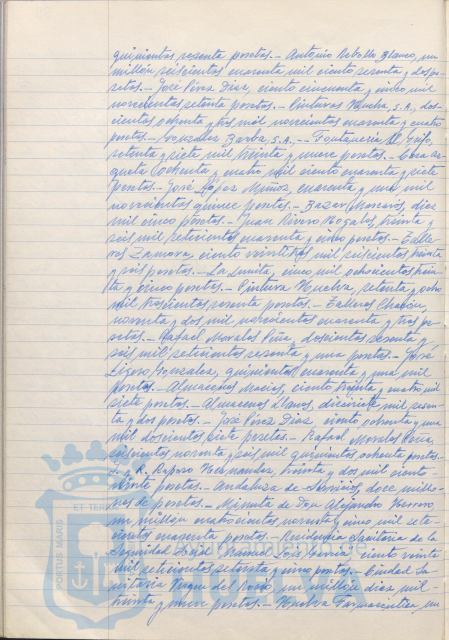 quinientas sesenta pesetas.- Antonio Rebollo Blanco, un
millón seiscientas cuarenta mil ciento sesenta y dos pe-
setas.- José Pérez Díaz, ciento cincuenta y cinco mil
novecientas setenta pesetas.- Pinturas Huelva, S.A., dos-
cientas ochenta y tres mil novecientas cuarenta y cuatro
pesetas.- González Barba, S.A.,.- Fontanería El Grifo,
setenta y siete mil treinta y nueve pesetas.-
ochenta y cuatro mil ciento cuarenta y siete
pesetas.- José López Muñoz, cuarenta y una mil
novecientas quince pesetas.- Bazar Mascarós, diez
mil cinco pesetas.- Juan Rivero Nogales, treinta y
seis mil setecientas cuarenta y cinco pesetas.- Talle-
res Zamora, ciento veintitrés mil seiscientas treinta
y seis pesetas.- La Lunita, cinco mil ochocientas trein-
ta y cinco pesetas.- Pintura Huelva, setenta y ocho
mil trescientas noventa pesetas.- Talleres Chacón,
noventa y dos mil novecientas cuarenta y tres pe-
setas.- Rafael Morales Peña, doscientas sesenta y
seis mil setecientas sesenta y una pesetas.- José
González, quinientas cuarenta y una mil
pesetas.- Almacenes Macías, ciento treinta y cuatro mil
siete pesetas.- Almacenes Llanos, diecisiete mil sesen-
ta y dos pesetas.- José Pérez Díaz ciento ochenta y una
mil doscientas siete pesetas.- Rafael Morales Peña,
seiscientas noventa y seis mil quinientas ochenta pesetas.
J. R. Raposo Hernández, treinta y dos mil ciento
veinte pesetas.- Andaluza de Servicios, doce millo-
nes de pesetas.- Minuta de Don Alejandro Herrero
un millón cuatrocientas noventa y cinco mil sete-
cientas cuarenta pesetas.- Residencia Sanitaria de la
Seguridad Social Manuel Lois García, ciento veinte
mil setecientas setenta y cinco pesetas.- Ciudad Sa-
nitaria Virgen del Rocío un millón diez mil
treinta y nueve pesetas.- Huelva Farmacéutica, un
PORTUS MARIS
ET TERRAE
HUELVA